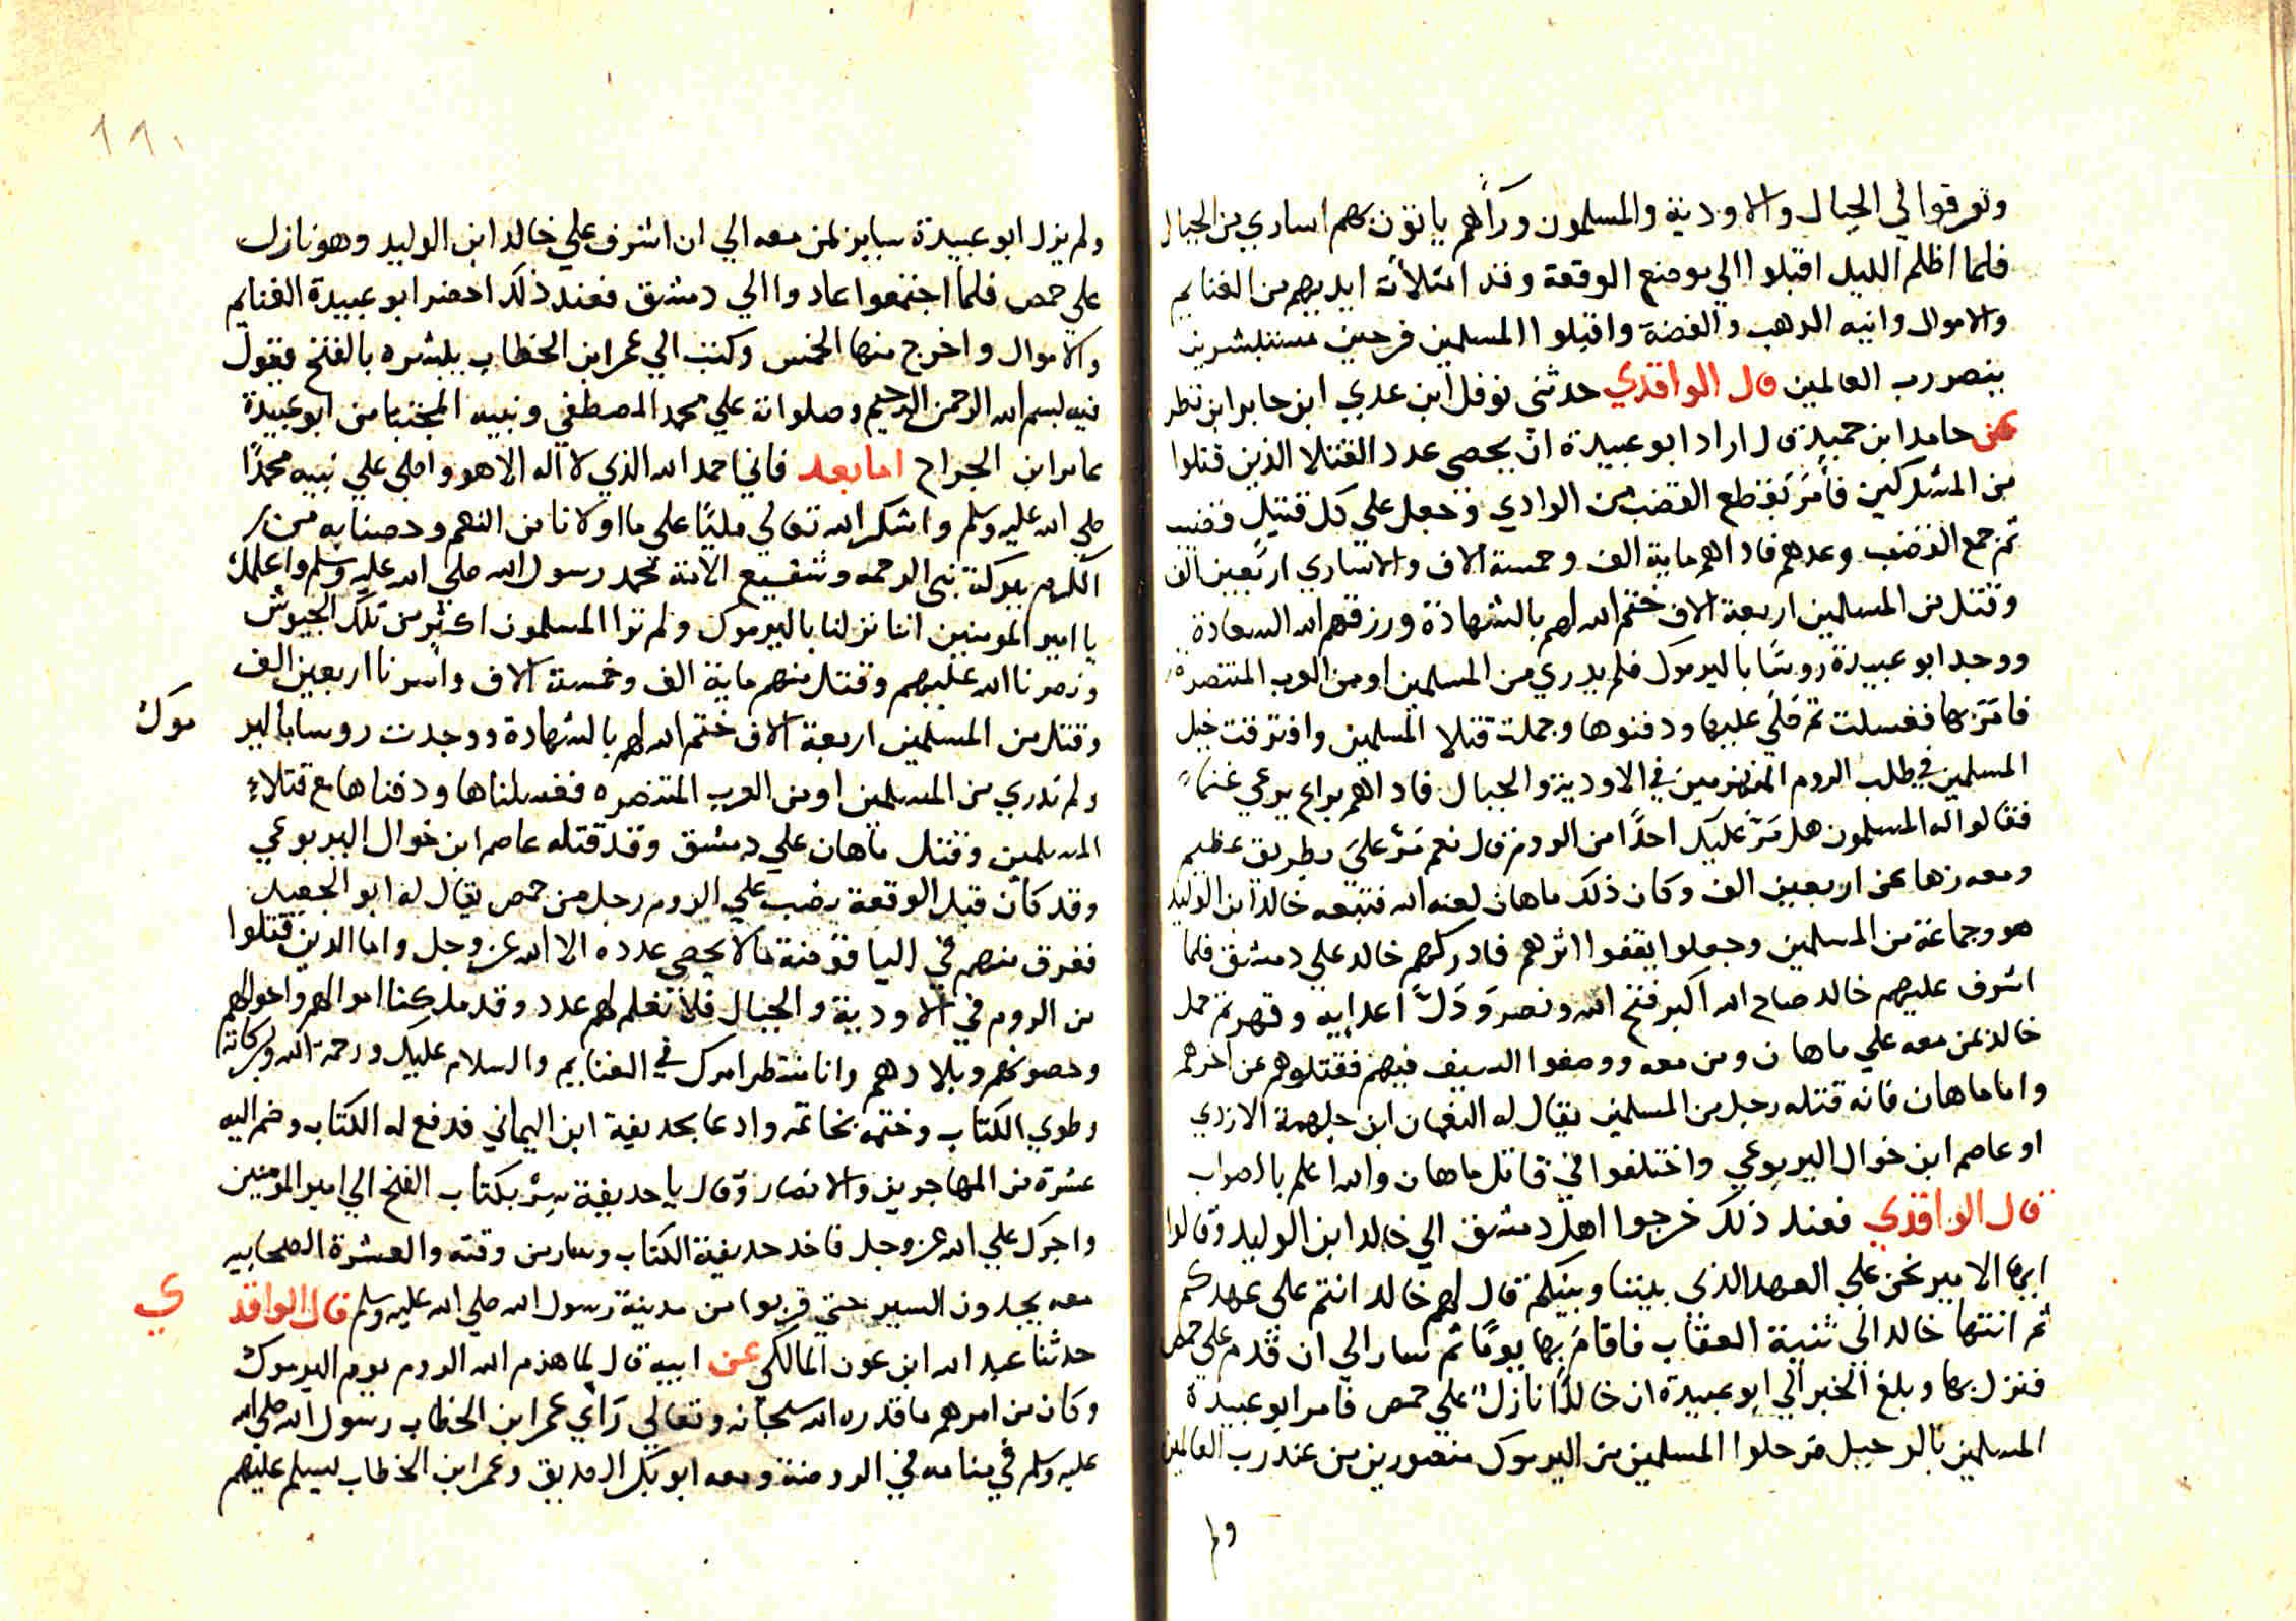 وتفرقوا في الجبال والاودية والمسلمون ورآهم ياتون بهم اساري من الجبال
فلما اظلم الليل اقبلوا الي موضع الوقعة وقد امتلأت ايديهم من الغنايم
والاموال وانيه الدهب والفضة واقبلوا المسلمين فرحين مستبشرين
بنصر رب العالمين قال الواقدي حدثني نوفل ابن عدي ابن جابر ابن نظر
عن حامد ابن حميد قال اراد ابو عبيدة ان يحصي عدد القتلا الذين قتلوا
من المشركين فأمر بقطع القضب من الوادي وجعل علي كل قتيل قضب
ثم جمع القضب وعدهم فادا هم ماية الف وخمسة الاف والاساري اربعين الف
وقتل من المسلمين اربعة الاف ختم الله لهم بالشهادة ورزقهم الله السعادة
ووجد ابو عبيدة روسًا باليرموك فلم يدري من المسلمين او من العرب المتنصرة
فامر بها فغسلت ثم صلي عليها ودفنوها وجملت قتلا المسلمين وافترقت خيل
المسلمين في طلب الروم المنهزمين في الاودية والجبال فادا هم براع يرعي غنمًا
فقالوا له المسلمون هل مرّ عليك احدًا من الروم قال نعم مرّ علي بطريق عظيم
ومعه زها عن اربعين الف وكان ذلك ماهان لعنه الله فتبعه خالد ابن الوليد
هو وجماعة من المسلمين وجعلوا يقفوا اثرهم فادركهم خالد علي دمشق فلما
اشرف عليهم خالد صاح الله اكبر فتح الله ونصر وذلّ اعدايه وقهر ثم حمل
خالد بمن معه علي ماهان ومن معه ووضعوا السيف فيهم فقتلوهم عن اخرهم
واما ماهان فانه قتله رجل من المسلمين يقال له النعمان ابن جلهمة الازدي
او عاصم ابن خوال اليربوعي واختلفوا في قاتل ماهان والله اعلم بالصواب
قال الواقدي فعند ذلك خرجوا اهل دمشق الي خالد ابن الوليد وقالوا
ايها الامير نحن علي العهد الذي بيننا وبينكم قال لهم خالد انتم علي عهدكم
ثم انتها خالد الي ثنية العقاب فاقام بها يومًا ثم سار الي ان قدم علي حمص
فنزل بها وبلغ الخبر الي ابو عبيدة ان خالدًا نازل علي حمص فامر ابو عبيدة
المسلمين بالرحيل فرحلوا المسلمين من اليرموك منصورين من عند رب العالمين
ولم
١٩٠
ولم يزل ابو عبيدة ساير بمن معه الي ان اشرف علي خالد ابن الوليد وهو نازل
علي حمص فلما اجتمعوا عادوا الي دمشق فعند ذلك احضر ابو عبيدة الغنايم
والاموال واخرج منها الخمس وكتب الي عمر ابن الخطاب يبشره بالفتح فيقول
فيه بسم الله الرحمن الرحيم وصلواته علي محمد المصطفي ونبيه المجتبا من ابو عبيدة
عامر ابن الجراح اما بعد فاني احمد الله الذي لا اله الا هو واصلي علي نبيه محمدًا
صلي الله عليه وسلم واشكر الله تعالي مليًا علي ما اولانا من النعم وخصنا به من
الكرم ببركة نبي الرحمه وشفيع الامة محمد رسول الله صلي الله عليه وسلم واعلمك
يا امير المومنين اننا نزلنا باليرموك ولم تروا المسلمون اكثر من تلك الجيوش
ونصرنا الله عليهم وقتل منهم ماية الف وخمسة الاف واسرنا اربعين الف
وقتل من المسلمين اربعة الاف ختم الله لهم بالشهادة ووجدت روسا بالير موك
ولم ندري من المسلمين او من العرب المتنصره فغسلناها ودفناها مع قتلاء
المسلمين وقتل ماهان علي دمشق وقد قتله عاصم ابن خوال اليربوعي
وقد كان قبل الوقعة نصب علي الروم رجل من حمص يقال له ابو الجعيد
فغرق منهم في الياقوصة ما لا يحصي عدده الا الله عز وجل واما الدين قتلوا
من الروم في الاودية والجبال فلا نعلم لهم عدد وقد ملكنا اموالهم واحوالهم
وحصونهم وبلادهم وانا منتظر امرك في الغنايم والسلام عليك ورحمة الله وبركاته
وطوي الكتاب وختمه بخاتمه وادعا بحديفة ابن اليماني فدفع له الكتاب وضم اليه
عشرة من المهاجرين والانصار وقال يا حديفة سر بكتاب الفتح الي امير المومنين
واجرك علي الله عز وجل فاخد حديفة الكتاب وسار من وقته والعشرة الصحابيه
معه يجدون السير حتي قربوا من مدينة رسول الله صلي الله عليه وسلم قال الواقد ي
حدثنا عبد الله ابن عون المالكي عن ابيه قال لما هزم الله الروم يوم اليرموك
وكان من امرهم ما قدره الله سبحانه وتعالي رأي عمر ابن الخطاب رسول الله صلي الله
عليه وسلم في منامه في الروضة ومعه ابو بكر الصديق وعمر ابن الخطاب ليسلم عليهم